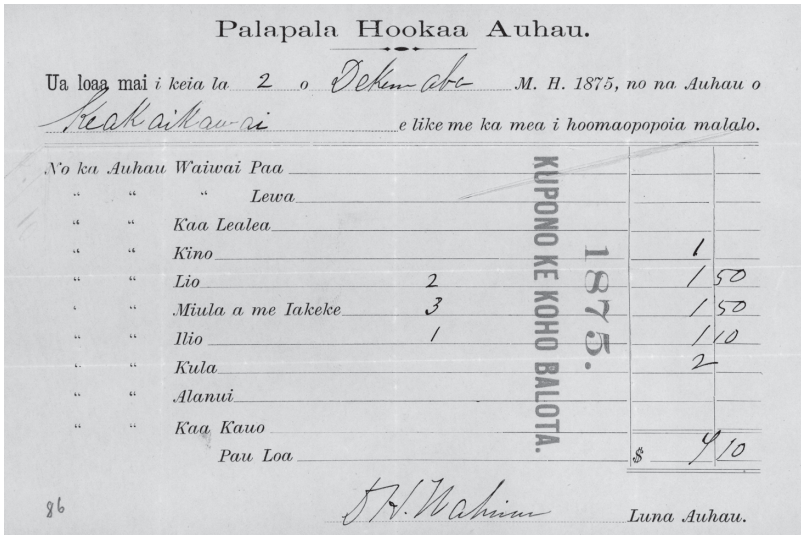 Palapala Hookaa Auhau.
Ua loaa mai i keia la 2 o Dekemaba M. H. 1875, no na Auhau o
Keakaikawai e like me ka mea i hoomaopopoia malalo.
No ka Auhau Waiwai Paa
“ “ “ Lewa
“ “ Kaa Lealea
“ “ Kino 1
“ “ Lio 2 1 50
“ “ Miula a me Iakeke 3 1 50
“ “ Ilio 1 1 10
“ “ Kula 2
“ “ Alanui
“ “ Kaa Kauo
Pau Loa $ 7 10
KUPONO KE KOHO BALOTA.
1875.
86
Luna Auhau.